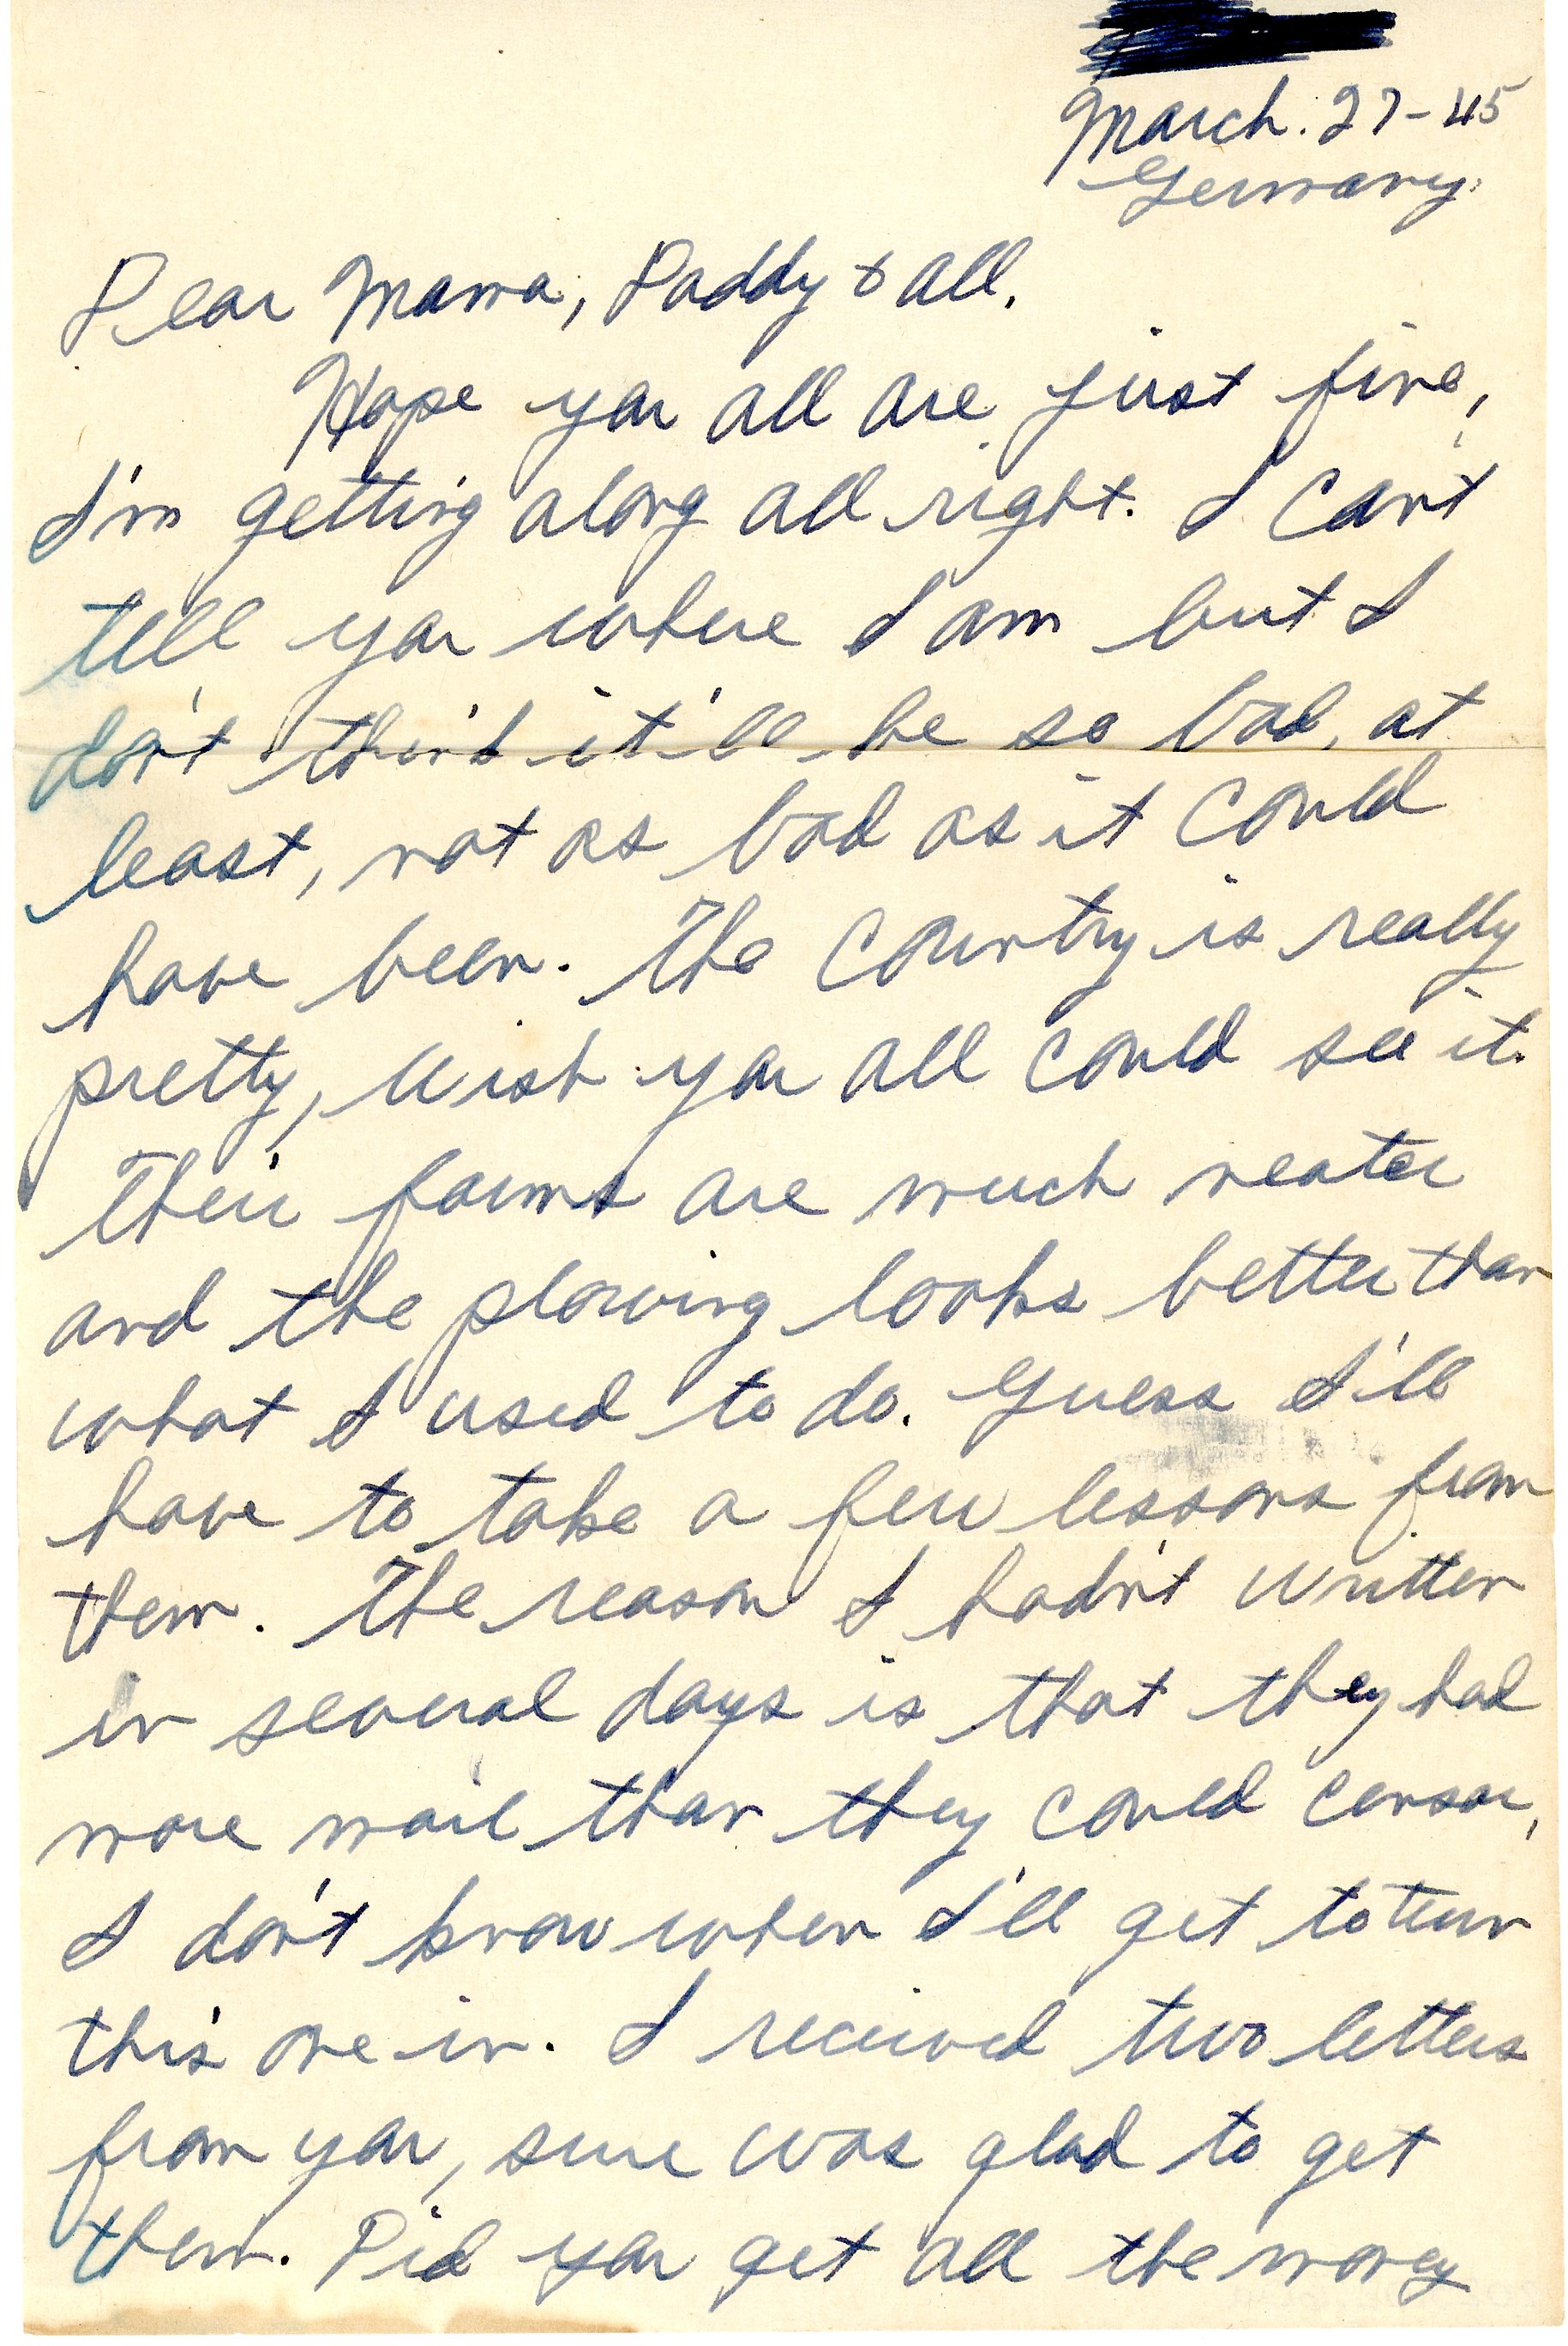 March. 27-45
Germany.
Dear Mama, Daddy & all.
Hope you all are just fine,
I'm getting along all right. I can't
tell you where I am but I
don't think it'll be so bad, at
least, not as bad as it could
have been. The country is really
pretty, wish you all could see it.
Their farms are much neater
and the plowing looks better than
what I used to do. Guess I'll
have to take a few lessons from
them. The reason I hadn't written
in several days is that they had
more mail than they could censor,
I don't know when I'll get to turn
this one in. I received two letters
from you, sure was glad to get
them. Did you get all the money